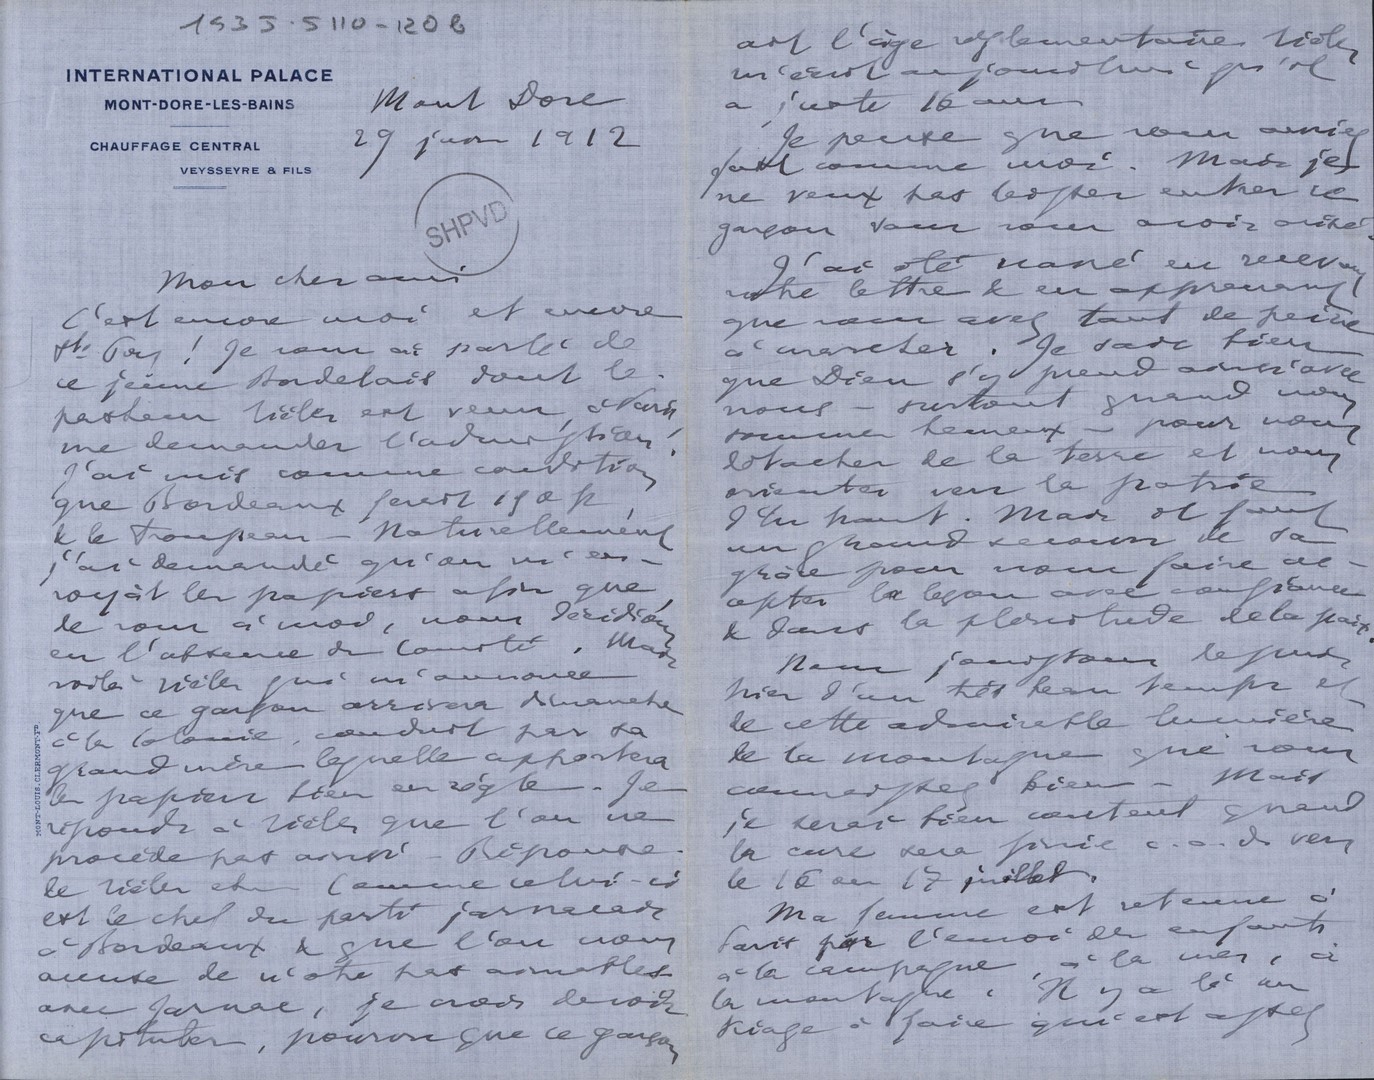 1933.5110-120B
INTERNATIONAL PALACE
MONT-DORE-LES-BAINS
CHAUFFAGE CENTRAL
VEYSSEYRE & FILS
Mont Dore
29 juin 1912
SHPVD
Mon cher ami
C'est encore moi et encore
Ste Foy ! Je vous ai parlé de
ce jeune Bordelais dont le
pasteur est venu, à Paris
me demander l'admission !
J'ai mis comme condition
que Bordeaux ferait 150 f
& le Troupeau – Naturellement
j'ai demandé qu'on m'en-
voyât les papiers afin que
de vous à moi, nous décidions
en l'absence du Comité. Mais
voilà qui m'annonce
que ce garçon arrivera dimanche
à la Colonie, conduit par sa
grand mère laquelle apportera
les papiers bien en règle. Je
réponds à que l'on ne
procède pas ainsi – Réponse
de etc. Comme celui-ci
est le chef du parti jarnacais
à Bordeaux & que l'on nous
accuse de n'être pas aimables
avec Jarnac, je crois devoir
capituler, pourvu que ce garçon
ait l'âge réglementaire.
m'écrit aujourd'hui qu'il
a juste 16 ans
Je pense que vous auriez
fait comme moi. Mais je
ne veux pas laisser entrer ce
garçon sans vous avoir avisé.
J'ai été navré en recevant
votre lettre & en apprenant
que vous avez tant de peine
à marcher. Je sais bien
que Dieu s'y prend ainsi avec
nous – surtout quand nous
sommes heureux – pour nous
détacher de la terre et nous
orienter vers la patrie
d'En haut. Mais il faut
un grand secours de sa
grâce pour nous faire ac-
cepter la leçon avec confiance
& dans la plénitude de la paix.
Nous jouissons depuis
hier d'un très beau temps et
de cette admirable lumière
de la montagne que vous
connaissez bien – Mais
je serai bien content quand
la cure sera finie c.a.d. vers
le 16 ou 17 juillet.
Ma femme est retenue à
Paris par l'envoi des enfants
à la campagne, à la mer, à
la montagne. Il y a là un
triage à faire qui est assez
MONT-LOUIS, CLERMONT-Fd.